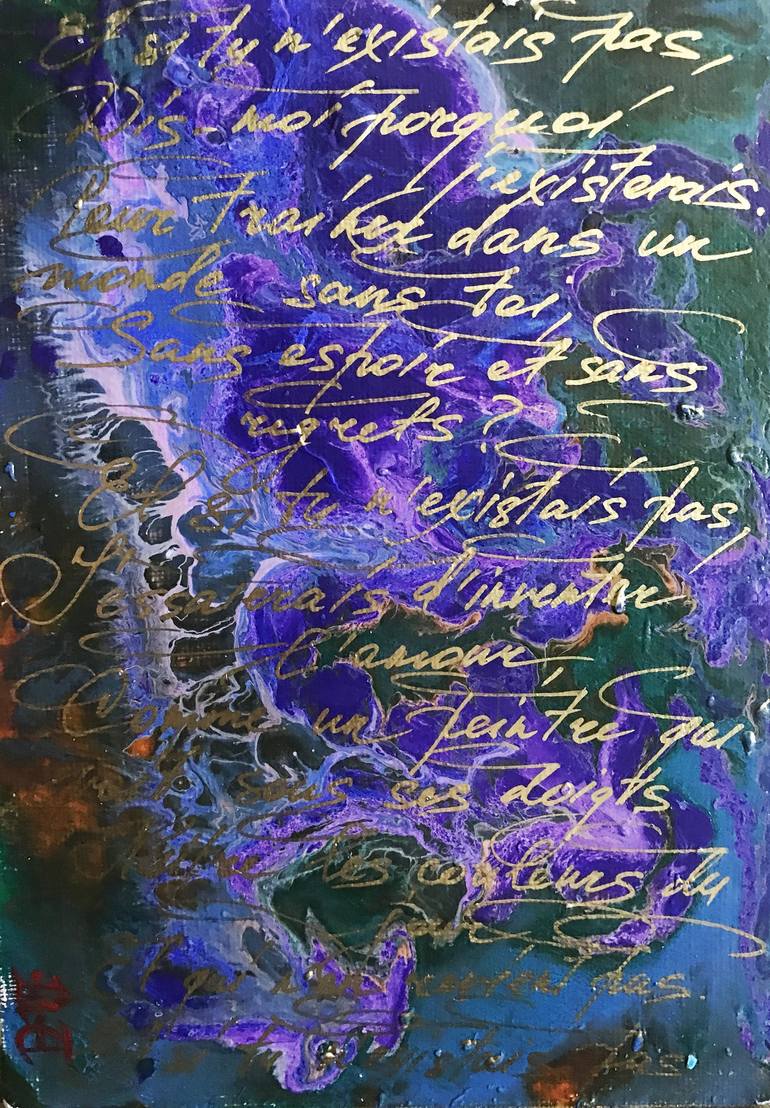 Et si tu n'existais pas,
Dis-moi porquoi
j'existerais.
Pour traîner dans un
monde sans toi,
Sans espoir et sans
regrets?
Et si tu n'existais pas,
J'essaierais d'inventer
l'amour,
Comme un peintre qui
voit sous ses doigts
Naître les couleurs du
jour
Et qui n'en revient pas
Et si tu n'existais pas